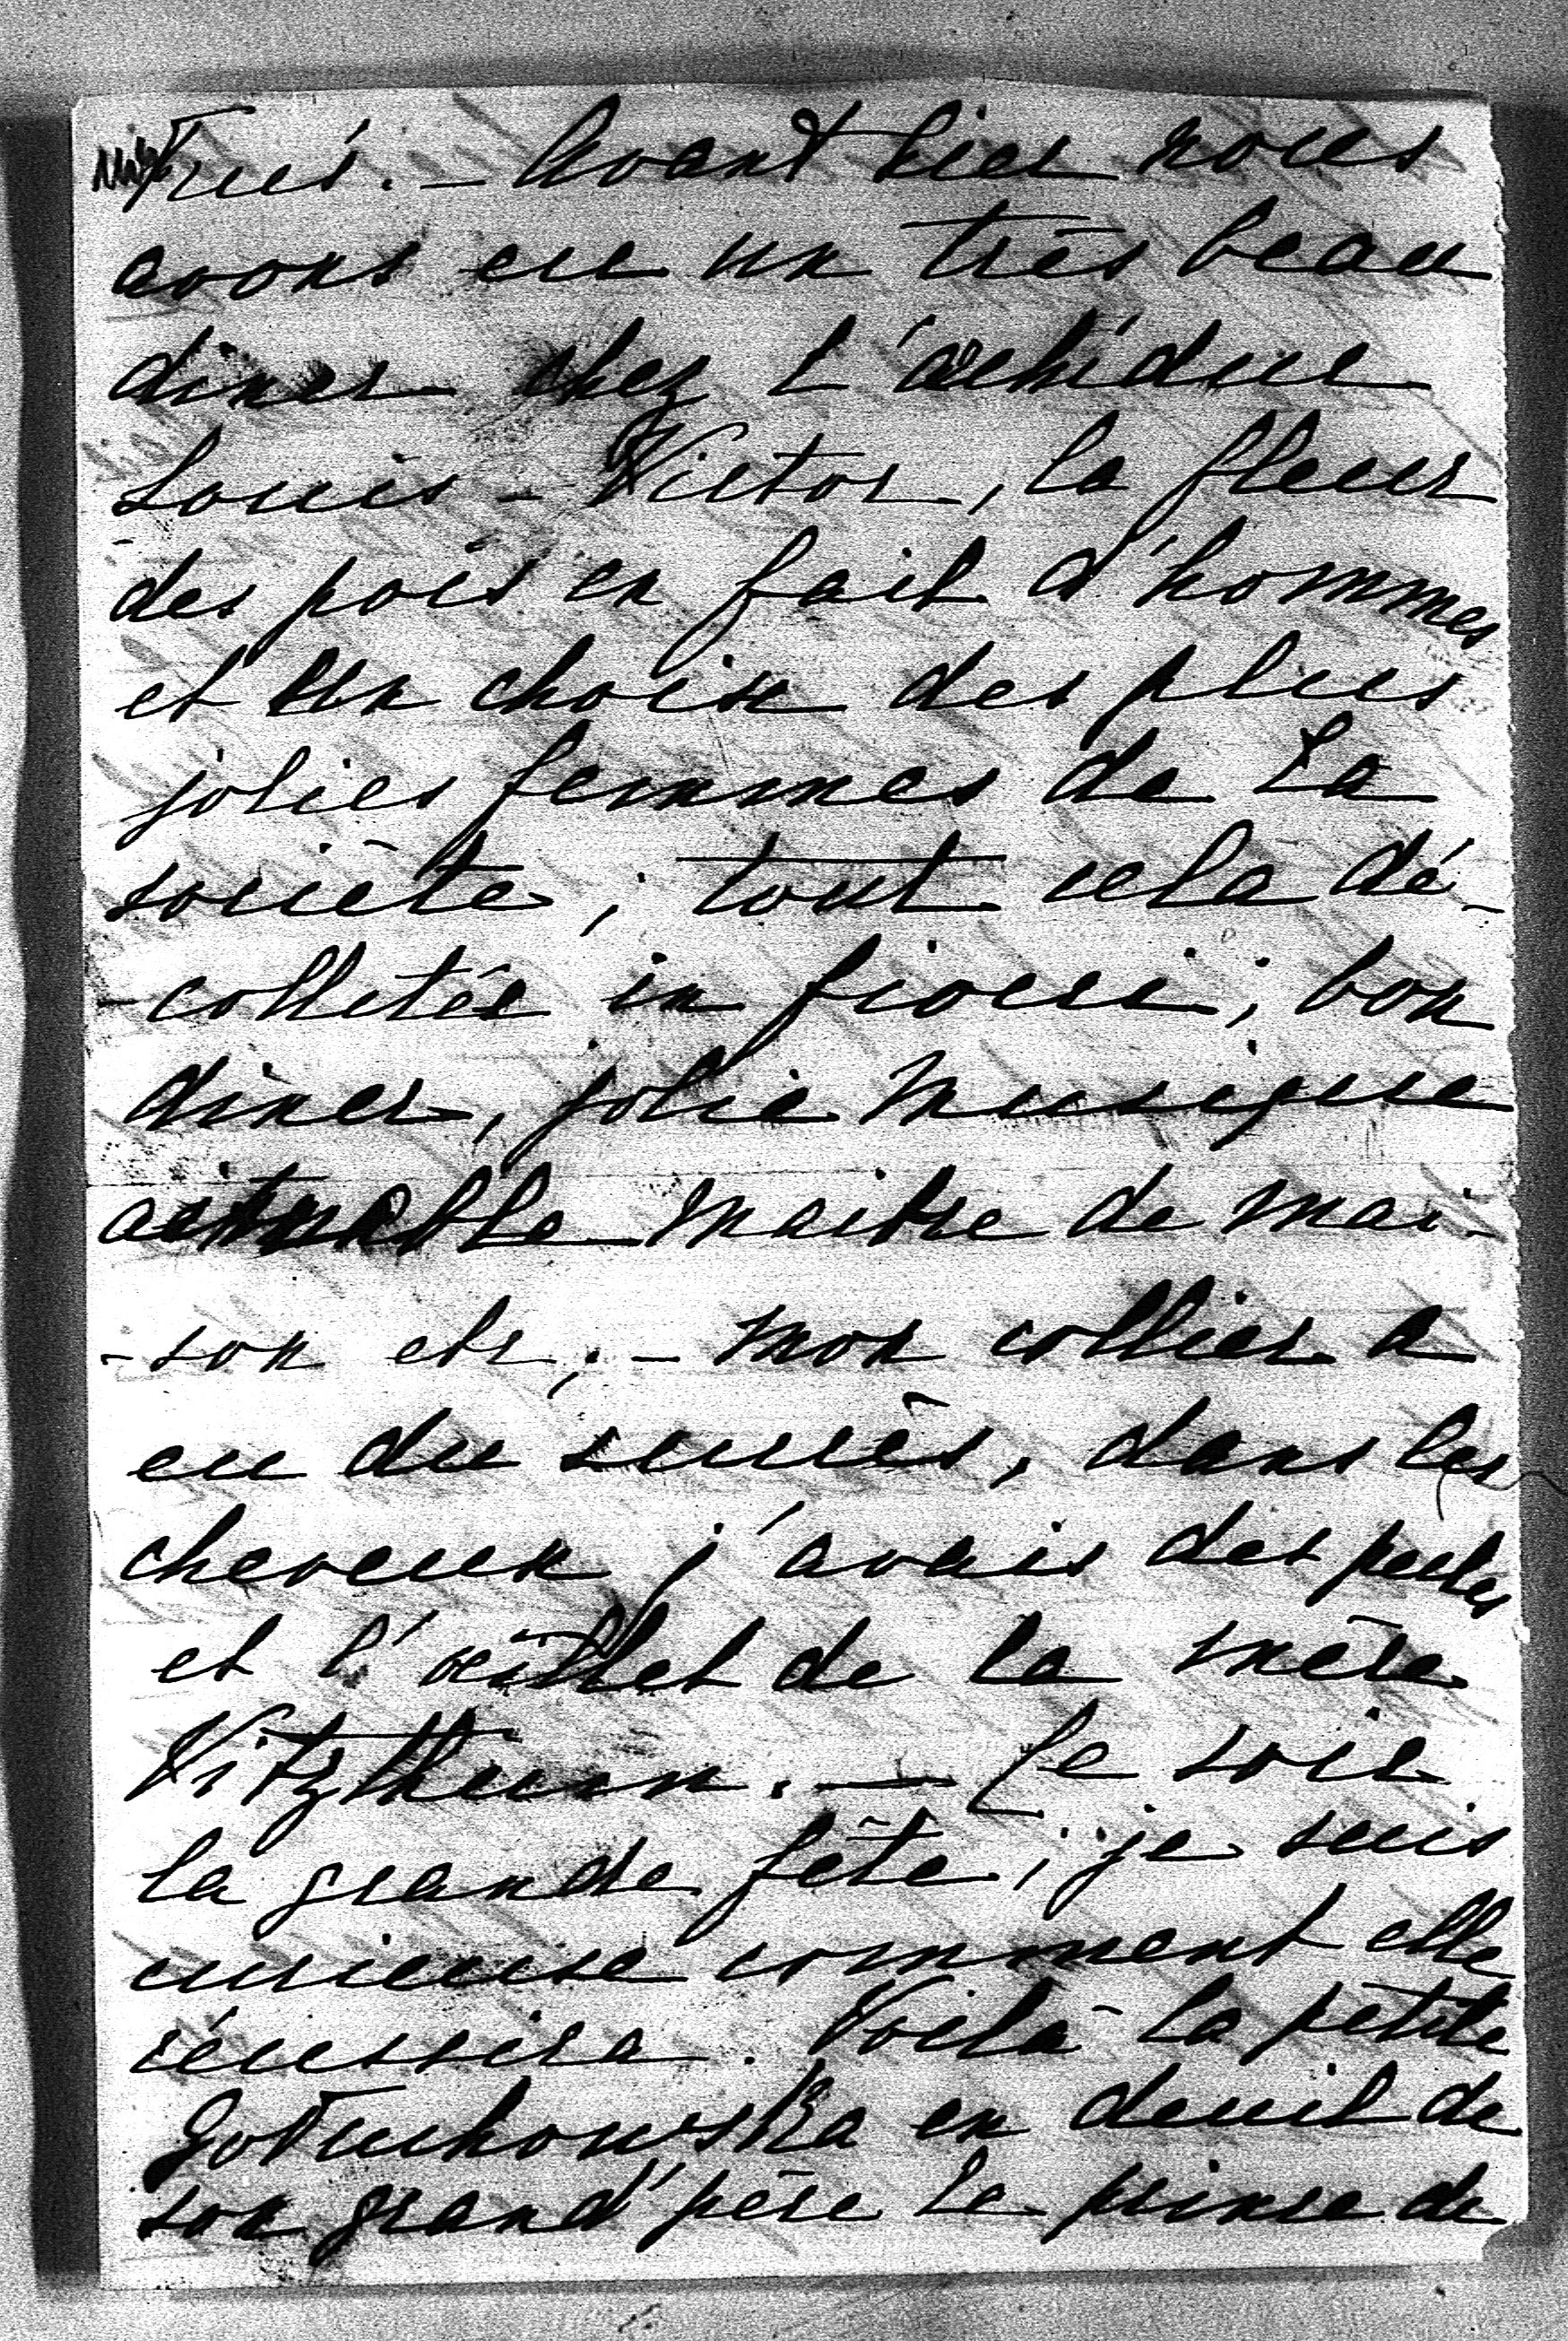 Trués. — Avant hier nous
avons eu un très beau
diner chez l'archiduc
Louis - Victor, la fleur
des pois en fait d'hommes
et un choix des plus
jolies femmes de la
société; tout cela dé-
- colletée in fiocci; bon
diner, jolie musique
aimable maitre de mai-
- son etc; — mon collier a
eu du succès, dans les
cheveux j'avais des perles
et l'œillet de la mère
Vitzthum. — Ce soir
la grande fête; je suis
curieuse comment elle
réussira. Voilà la petite
Gołuchowska en deuil de
son grand'père le prince de